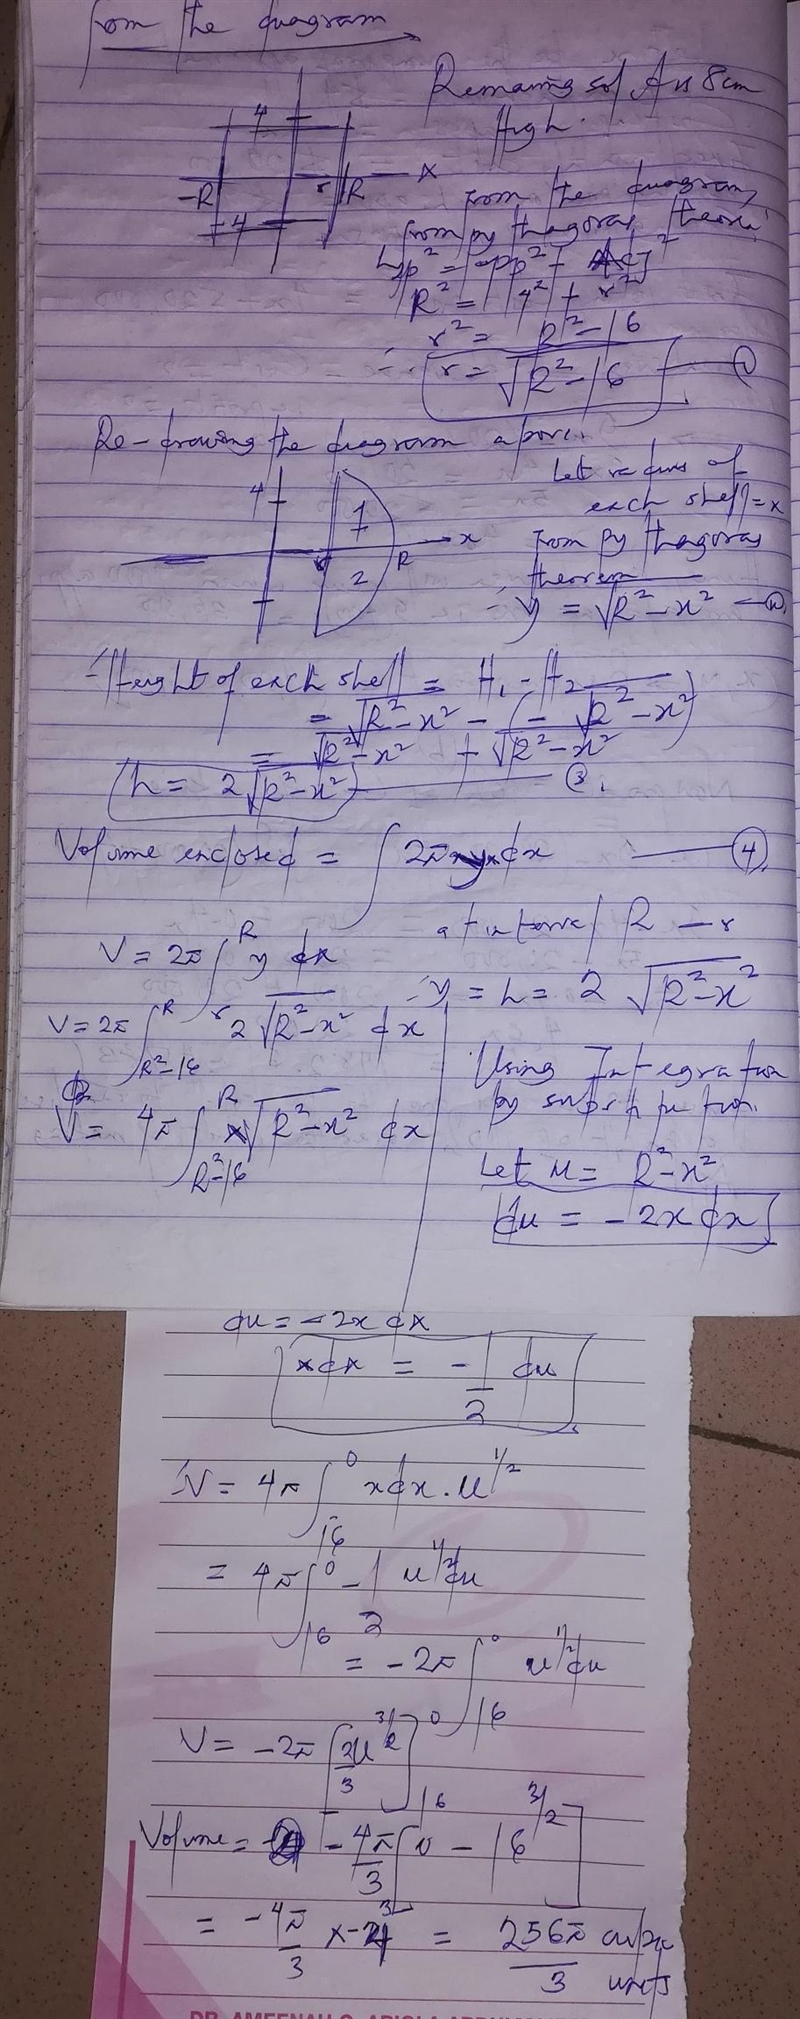 from the diagram
Remaining sol A is 8cm
High.
4
x
-R
r
R
-4
from the diagram,
from pythagoras theorem
Hyp² = opp² + Adj²
R² = 4² + r²
r² = R² - 16
∴ r = √R² - 16 — ①
Re-drawing the diagram above.
Let radius of
each shell = x
4
1
x
r
R
2
from pythagoras
theorem
∴ y = √R² - x² — ②
∴ Height of each shell = H₁ - H₂
= √R² - x² - (- √R² - x²)
= √R² - x² + √R² - x²
h = 2√R² - x² — ③.
Volume enclosed = ∫ 2πxy dx — ④
at interval R - r
V = 2π ∫ᵣᴿ y dx
∴ y = h = 2 √R² - x²
V = 2π ∫ R²-16 R 2 √R² - x² dx
V = 4π ∫ R²-16 R x√R² - x² dx
Using Integration
by substitution.
Let u = R² - x²
du = -2x dx
du = -2x dx
x dx = -1/2 du
∴ V = 4π ∫₁₆⁰ x dx . u^1/2
= 4π ∫₁₆⁰ -1/2 u^1/2 du
= -2π ∫₁₆⁰ u^1/2 du
V = -2π [2u^3/2 / 3]₁₆⁰
Volume = -4π/3 [0 - 16^3/2]
= -4π/3 × -4³ = 256π/3 cubic
units